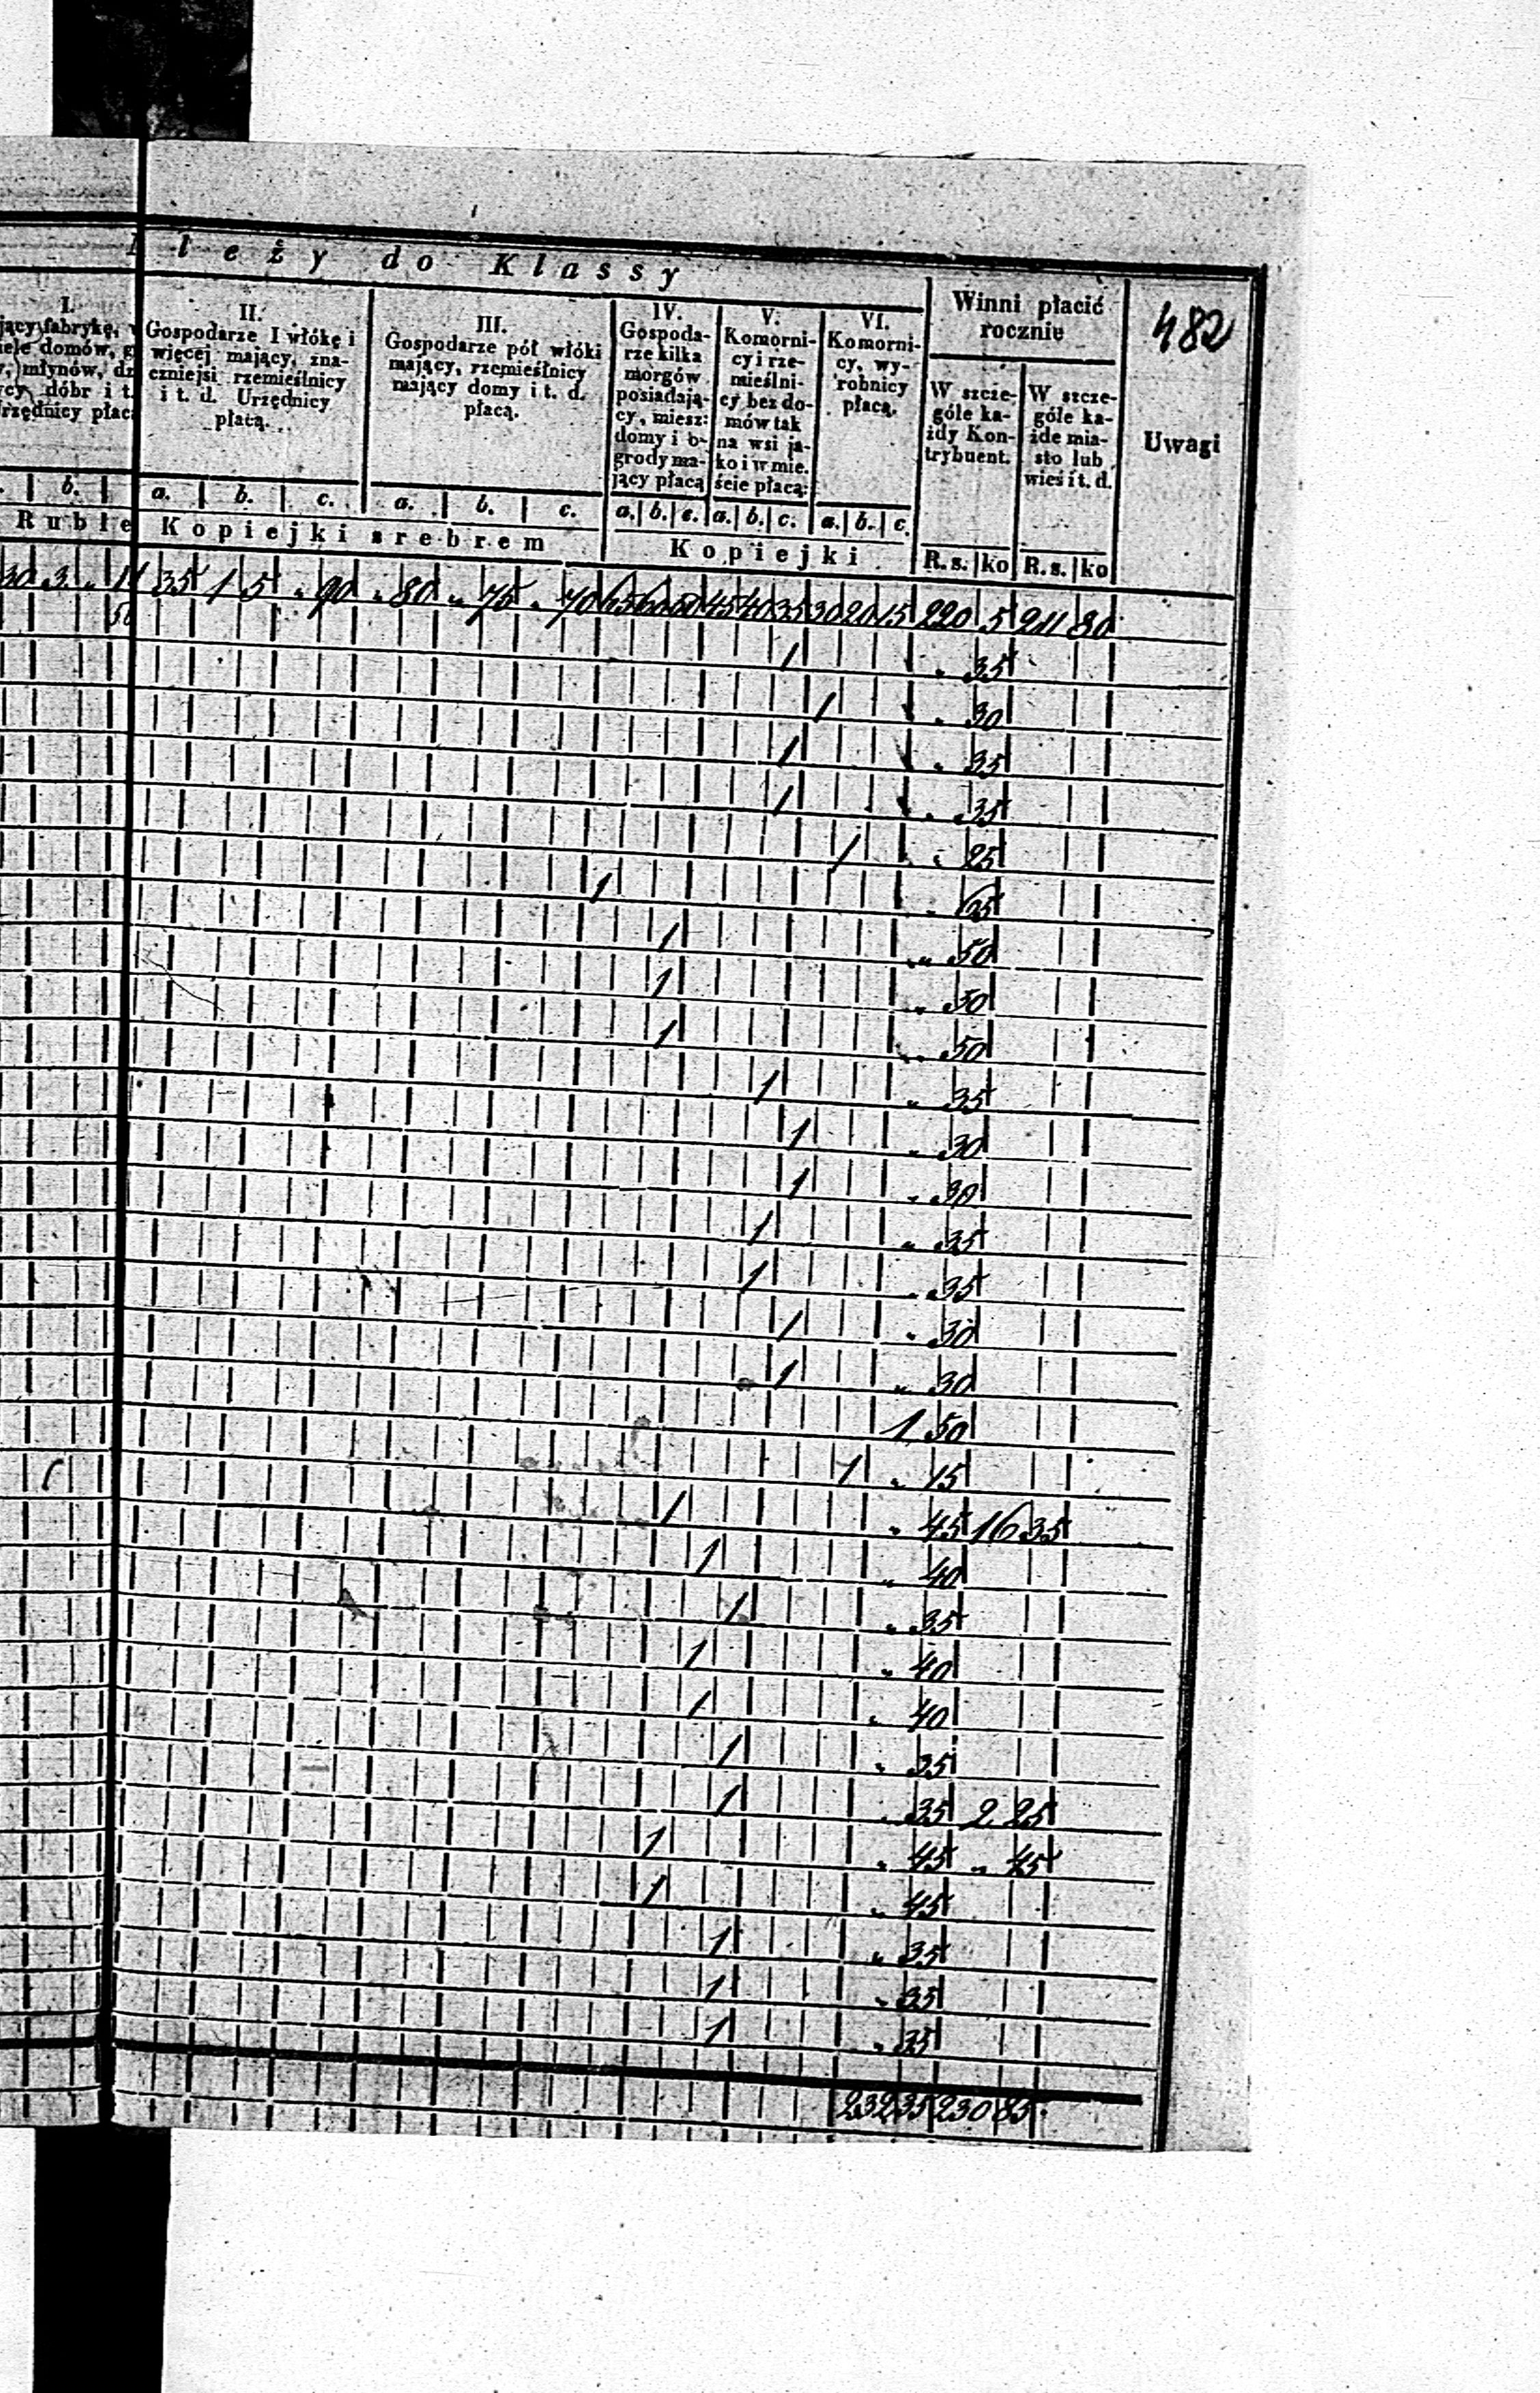 leży do Klassy
482
I.
jący fabrykę,
iele domów, g
młynów, dz
cy dóbr i t.
rzędnicy płac
II.
Gospodarze I włókę i
więcej mający, zna-
czniejsi rzemieślnicy
i t. d. Urzędnicy
płacą.
III.
Gospodarze pół włóki
mający, rzemieślnicy
mający domy i t. d.
płacą.
IV.
Gospoda-
rze kilka
morgów
posiadają-
cy, miesz:
domy i o-
grody ma-
jący płacą
V.
Komorni-
cy i rze-
mieślni-
cy bez do-
mów tak
na wsi ja-
ko i w mie.
ście płacą:
VI.
Komorni-
cy, wy-
robnicy
płacą.
Winni płacić
rocznie
W szcze-
góle ka-
żdy Kon-
trybuent.
W szcze-
góle ka-
żde mia-
sto lub
wieś i t. d.
Uwagi
b. a. b. c. a. b. c. a. b. c. a. b. c. a. b. c.
Ruble Kopiejki srebrem Kopiejki R.s. ko R.s. ko
30 3 " 35 1 5 " 90 " 80 " 75 " 70 65 60 50 45 40 35 30 20 15 220 5 211 80
1 " 35
1 " 30
1 " 35
1 " 35
1 " 25
1 " 65
1 " 50
1 " 50
1 " 50
1 " 35
1 " 30
1 " 30
1 " 35
1 " 35
1 " 30
1 " 30
1 50
1 " 15
1 " 45 16 35
1 " 40
1 " 35
1 " 40
1 " 40
1 " 35
1 " 35 2 25
1 " 45 " 45
1 " 45
1 " 35
1 " 35
1 " 35
232 35 230 85